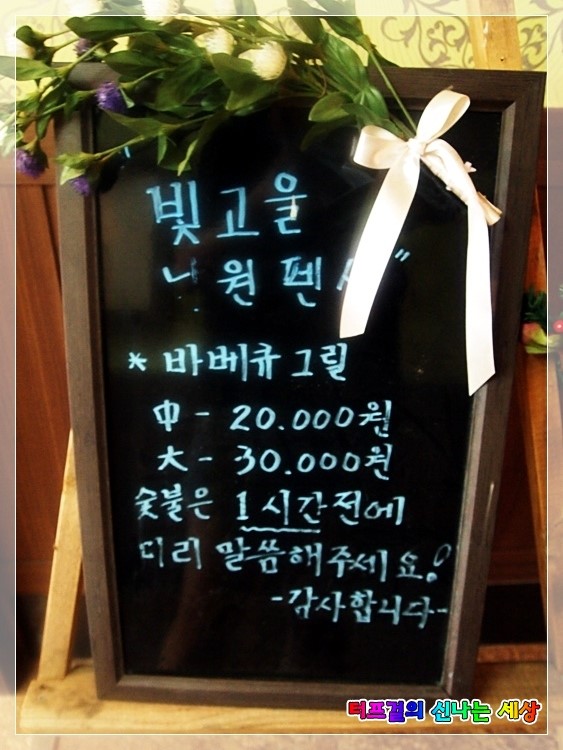 "빛고을
원펜
* 바베큐그릴
中 - 20.000원
大 - 30.000원
숯불은 1시간전에
미리 말씀해주세요!
-감사합니다-
터프걸의 신나는 세상